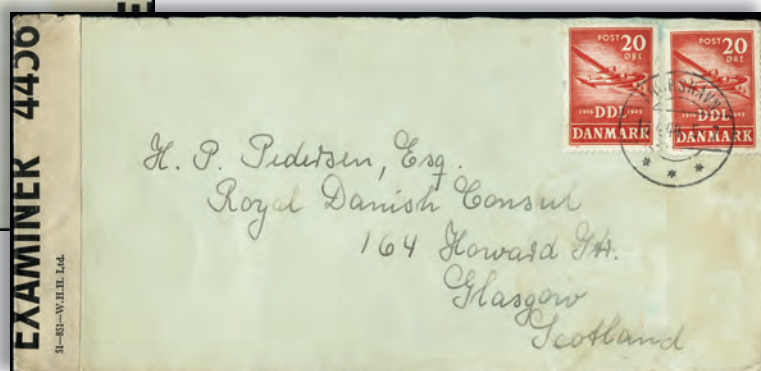 EXAMINER 4456
51—851—W.H.H. Ltd.
POST 20
ØRE
1918 DDL 1943
DANMARK
POST 20
ØRE
DDL 1943
DANMARK
H. P. Pedersen, Esq.
Royal Danish Consul
164 Howard Str.
Glasgow
Scotland